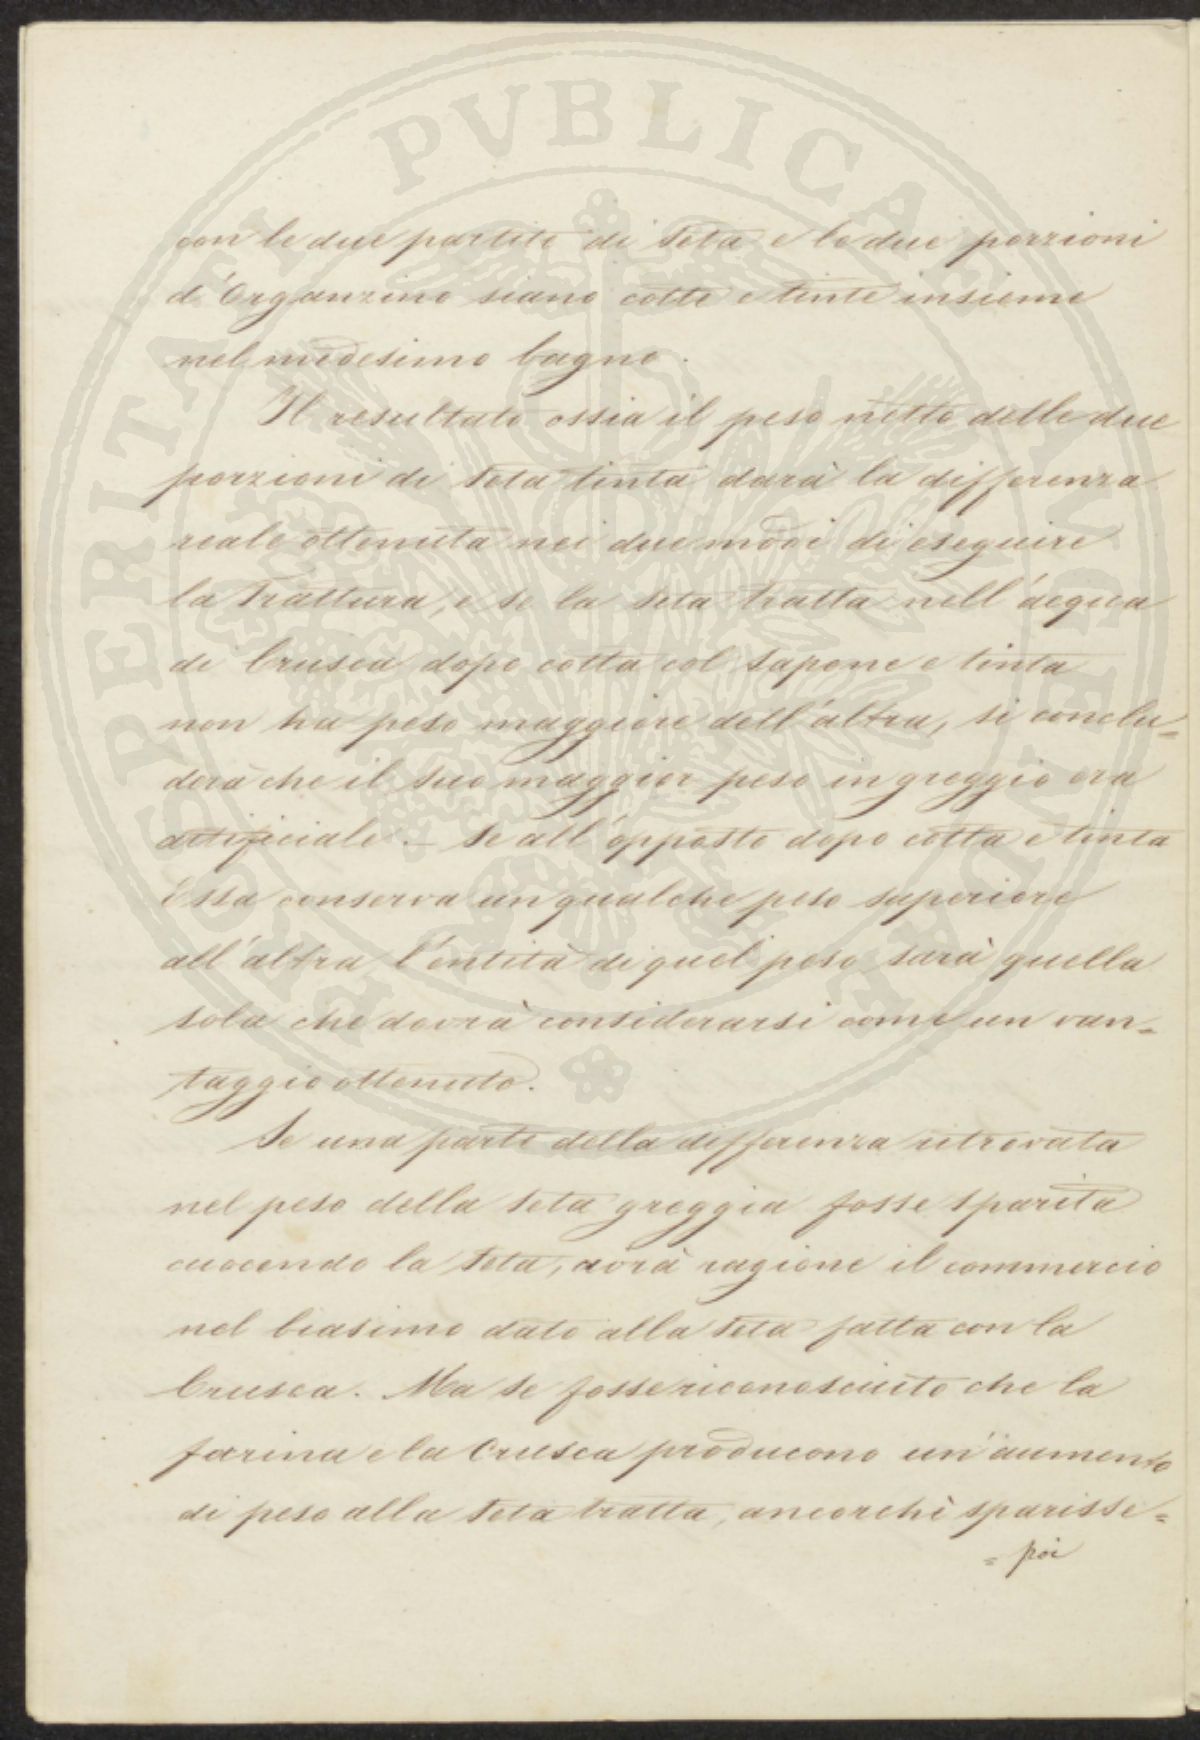 PROSPERITATI PVBLICAE AVGENDAE
con le due partite di seta e le due porzioni
d'Organzino siano cotte e tinte insieme
nel medesimo bagno.
Il resultato ossia il peso netto delle due
porzioni di seta tinta darà la differenza
reale ottenuta nei due modi di eseguire
la trattura, e se la seta tratta nell'acqua
di Crusca dopo cotta col sapone e tinta
non ha peso maggiore dell'altra, si conclu=
derà che il suo maggior peso in greggio era
artificiale. – Se all'opposto dopo cotta e tinta
Essa conserva un qualche peso superiore
all'altra l'entità di quel peso sarà quella
sola che dovrà considerarsi come un van=
taggio ottenuto.
Se una parte della differenza ritrovata
nel peso della seta greggia fosse sparita
cuocendo la seta, avrà ragione il commercio
nel biasimo dato alla seta fatta con la
Crusca. Ma se fosse riconosciuto che la
farina e la Crusca producono un'aumento
di peso alla seta tratta, ancorchè sparisse=
= poi